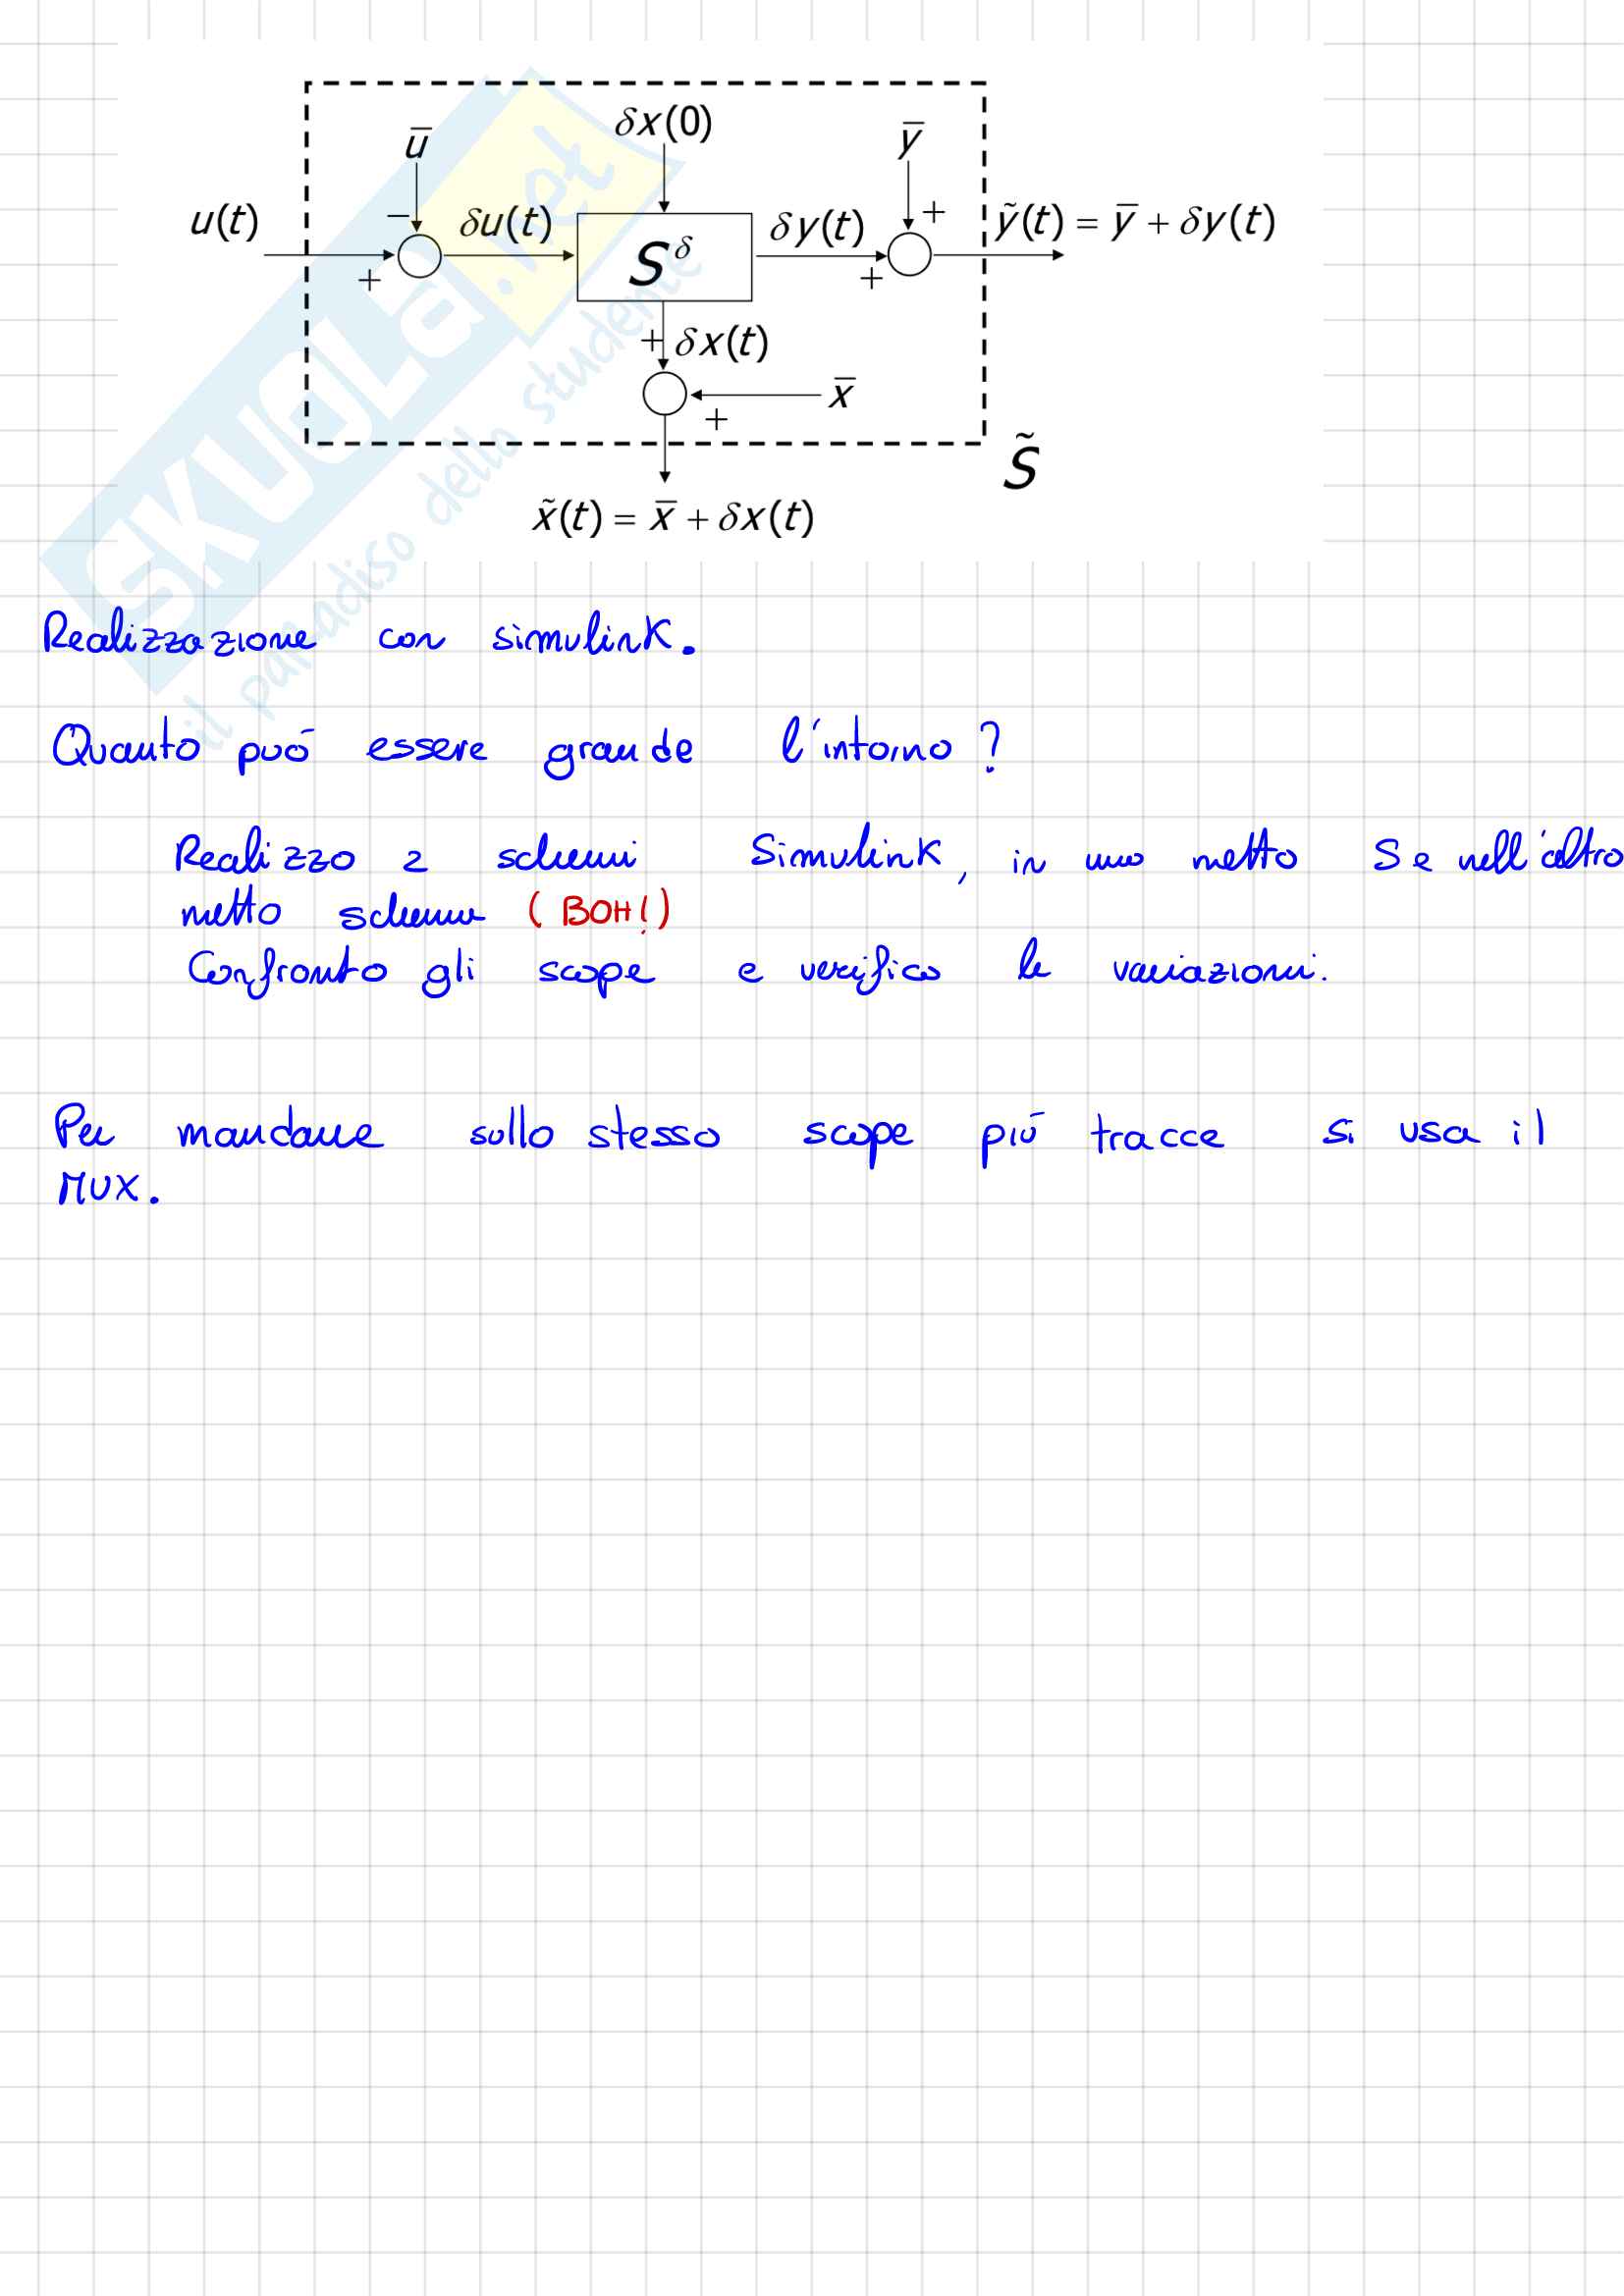 δx(0)
u̅
y̅
u(t)
−
δu(t)
δy(t)
+
ỹ(t) = y̅ + δy(t)
S^δ
+
+
+
δx(t)
x̅
+
S̃
x̃(t) = x̅ + δx(t)
SKUOLA.net
il paradiso dello studente
Realizzazione con simulinK.
Quanto può essere grande l'intorno?
Realizzo 2 schemi SimulinK, in uno metto S e nell'altro
metto schema (BOH!)
Confronto gli scope e verifico le variazioni.
Per mandare sullo stesso scope più tracce si usa il
MUX.